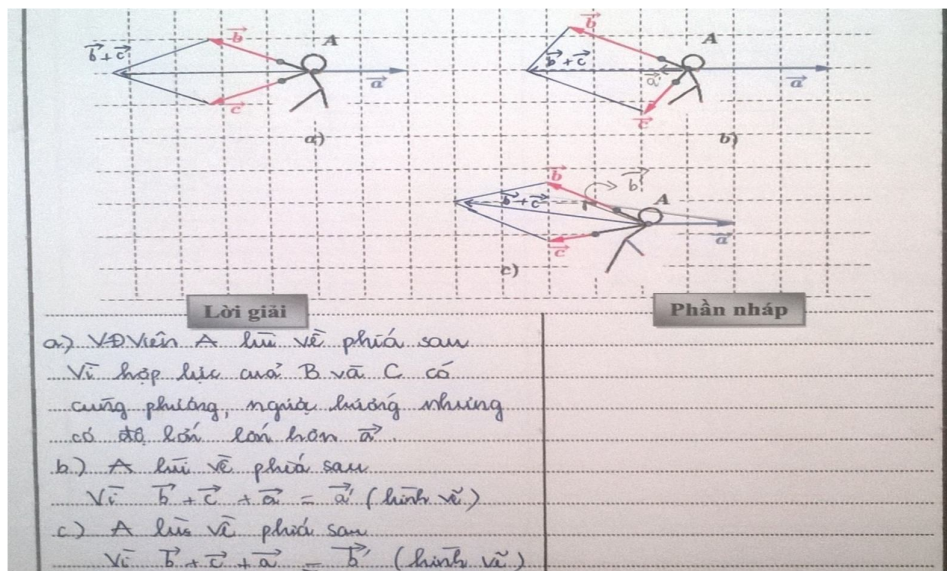 b⃗ A b⃗ A
b⃗+c⃗ b⃗+c⃗
a⃗ a⃗' a⃗
c⃗ c⃗
a) b)
b⃗ b⃗' A
b⃗+c⃗
a⃗
c⃗
c)
Lời giải Phần nháp
a) VĐViên A lùi về phía sau
Vì hợp lực của B và C có
cùng phương, ngược hướng nhưng
có độ lớn lớn hơn a⃗.
b.) A lùi về phía sau
Vì b⃗ + c⃗ + a⃗ = a⃗' (hình vẽ)
c) A lùi về phía sau
Vì b⃗ + c⃗ + a⃗ = b⃗' (hình vẽ)